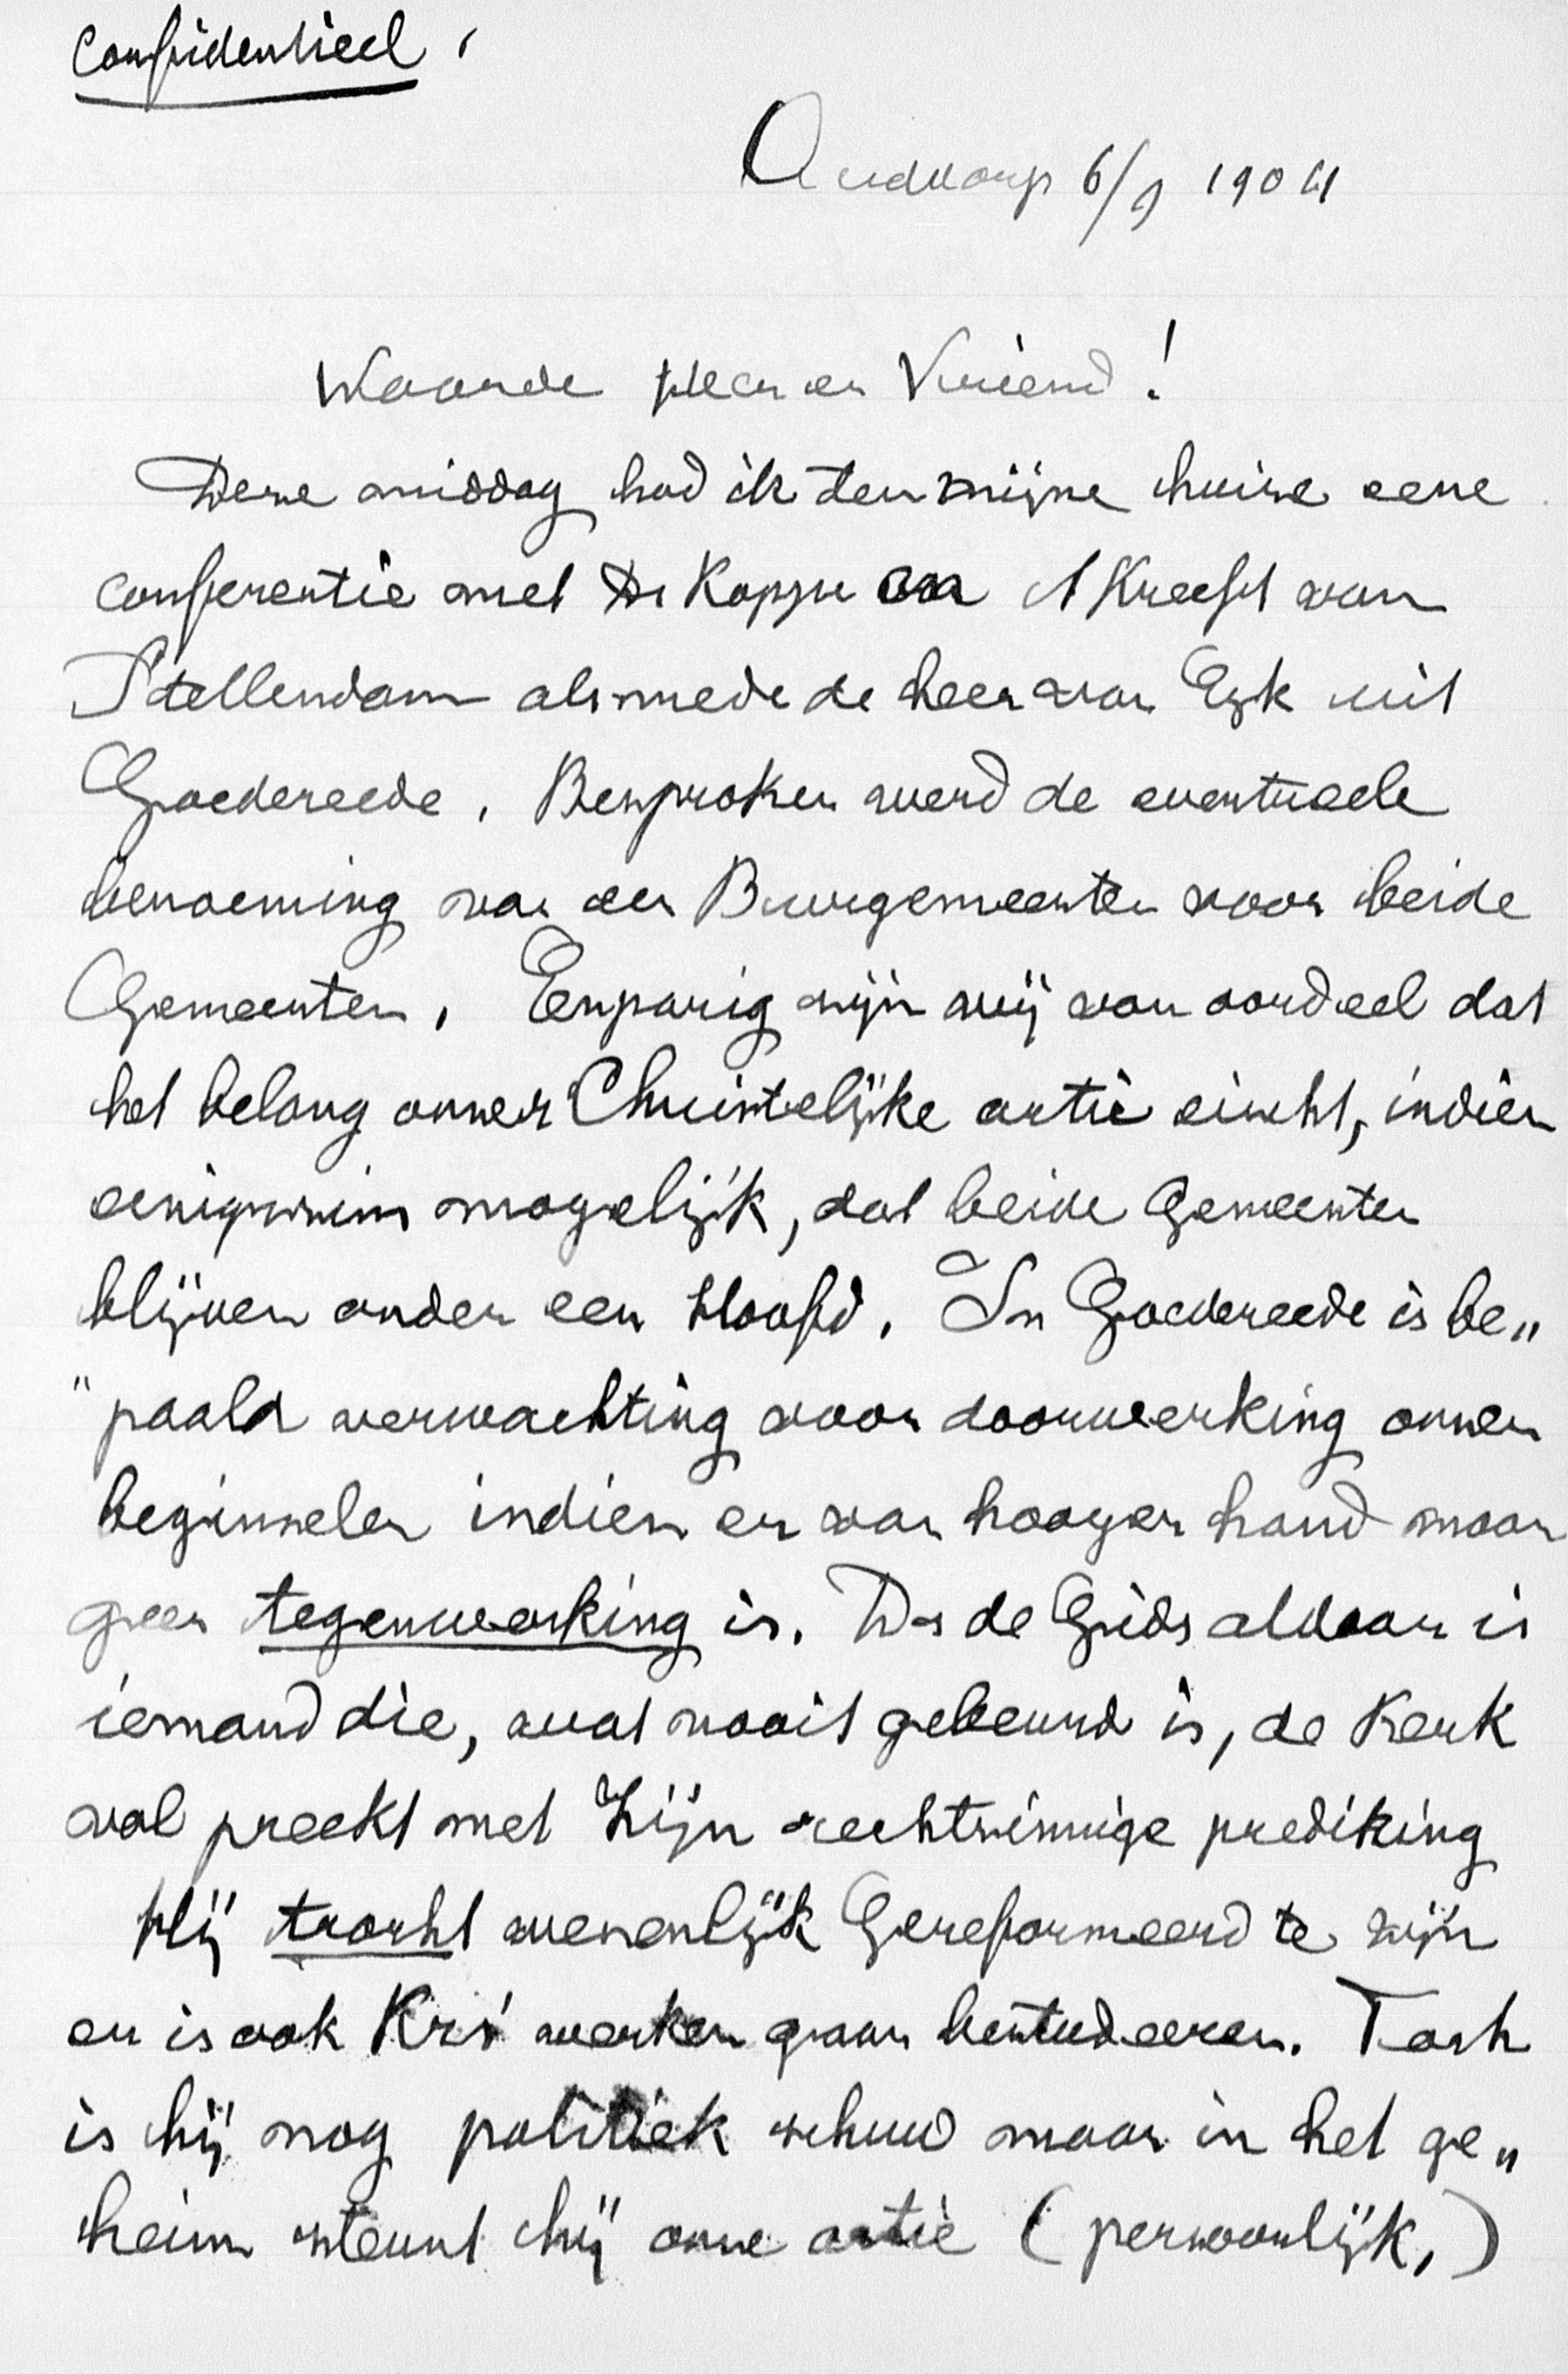 Confidentieel.
Ouddorp 6/9 1904
Waarde Heer en Vriend!
Deze middag had ik ten mijne huize eene
conferentie met Ds Koppe en A Kreeft van
Stellendam alsmede de heer van Eyk uit
Goedereede. Besproken werd de eventueele
benoeming van een Burgemeester voor beide
Gemeenten. Eenparig zijn wij van oordeel dat
het belang onzer Christelijke actie eischt, indien
eenigszins mogelijk, dat beide Gemeenten
blijven onder een Hoofd. In Goedereede is be„
"paald verwachting voor doorwerking onzer
beginselen indien er van hooger hand maar
geen tegenwerking is. Ds de Gids aldaar is
iemand die, wat nooit gebeurd is, de Kerk
vol preekt met Zijn rechtzinnige prediking
Hij tracht wezenlijk Gereformeerd te zijn
en is ook Krs' werken gaan bestudeeren. Toch
is hij nog politiek schuw maar in het ge„
heim steunt hij onze actie (persoonlijk.)